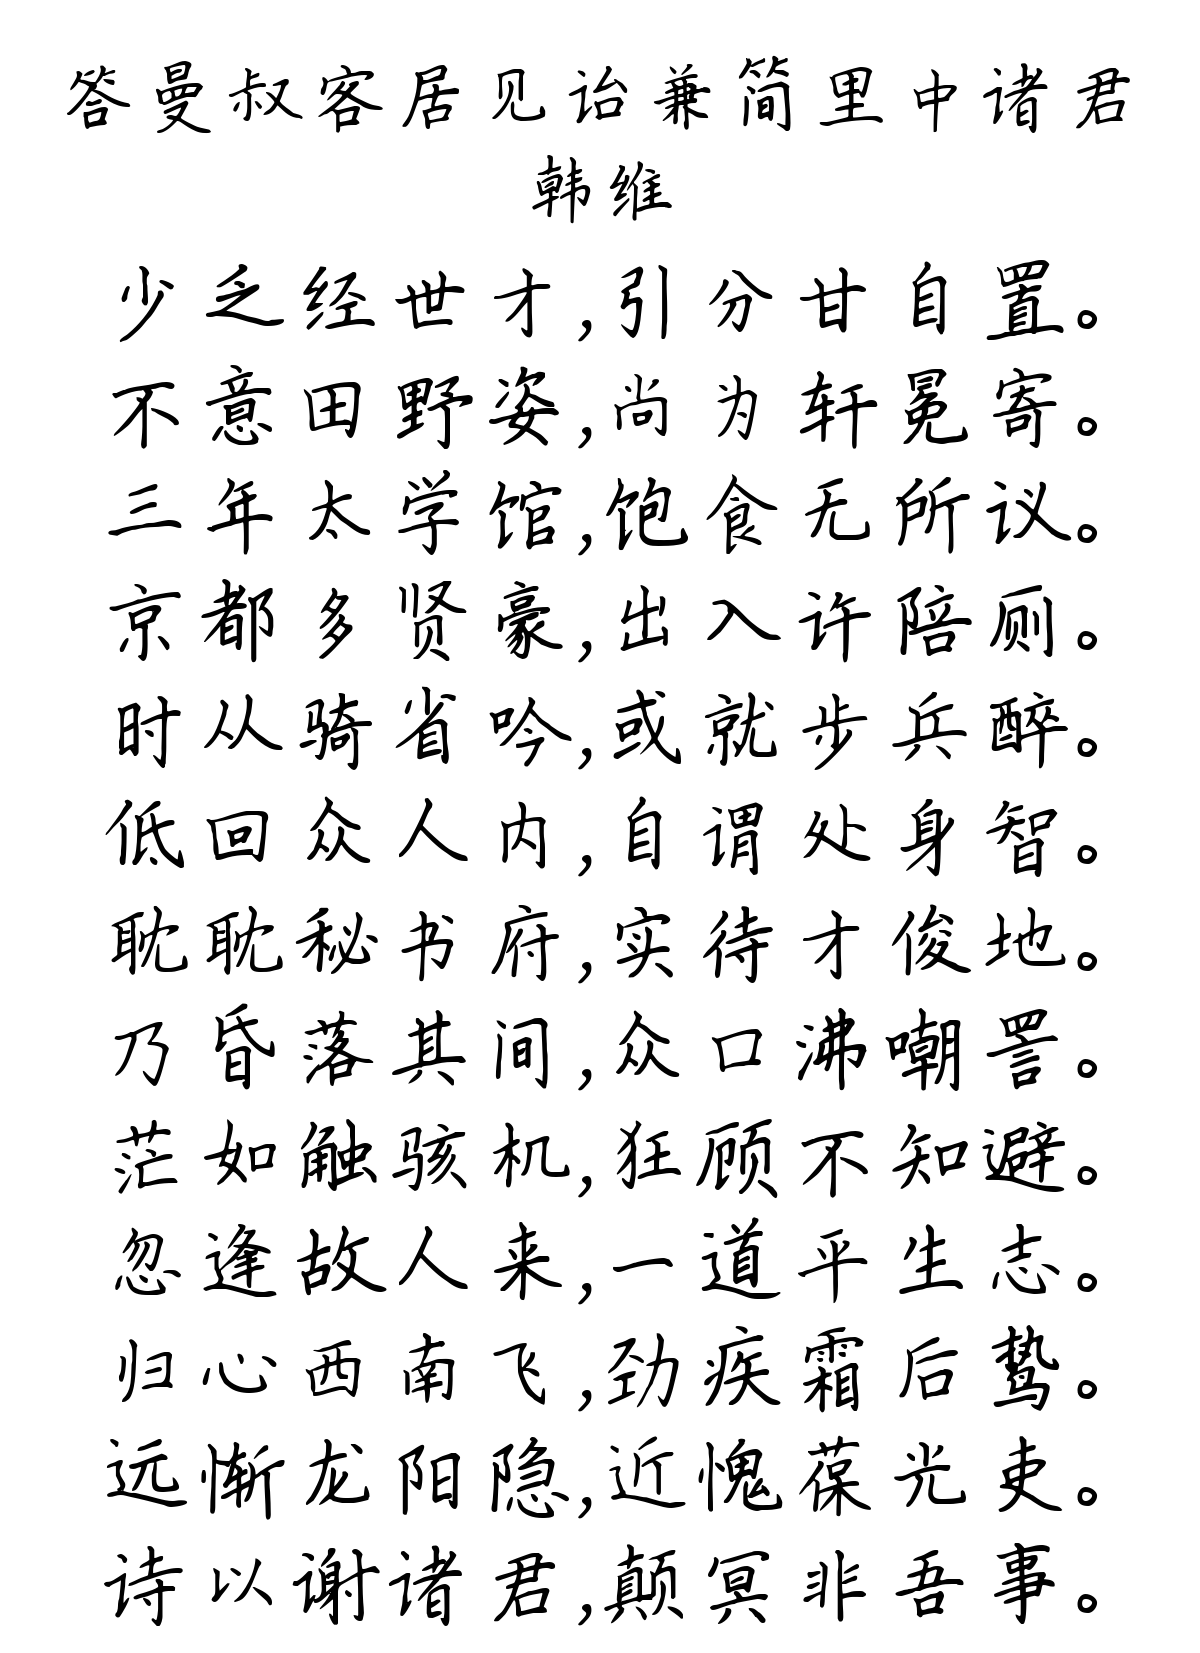 答曼叔客居见诒兼简里中诸君
韩维
少乏经世才,引分甘自置。
不意田野姿,尚为轩冕寄。
三年太学馆,饱食无所议。
京都多贤豪,出入许陪厕。
时从骑省吟,或就步兵醉。
低回众人内,自谓处身智。
耽耽秘书府,实待才俊地。
乃昏落其间,众口沸嘲詈。
茫如触骇机,狂顾不知避。
忽逢故人来,一道平生志。
归心西南飞,劲疾霜后鸷。
远惭龙阳隐,近愧葆光吏。
诗以谢诸君,颠冥非吾事。